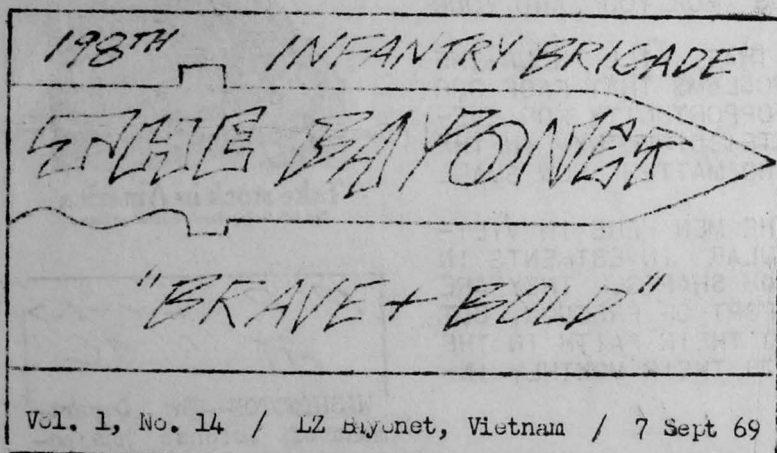 198TH INFANTRY BRIGADE
THE BAYONET
"BRAVE + BOLD"
Vol. 1, No. 14 / LZ Bayonet, Vietnam / 7 Sept 69